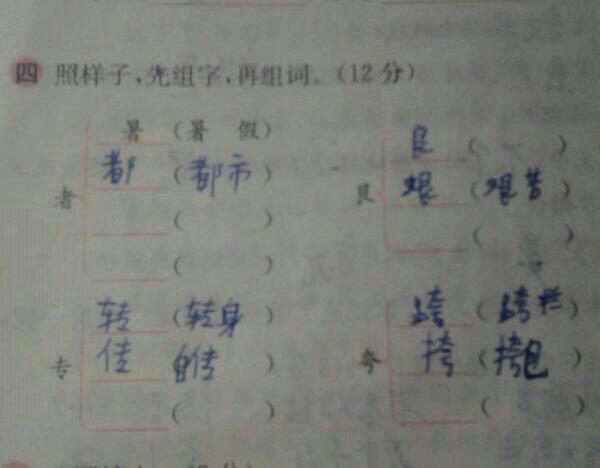 四 照样子,先组字,再组词。(12分)
暑 (暑 假)
都 (都市)
者
( )
( )
( )
艰 (艰苦)
艮
( )
转 (转身)
传 自传 )
专
( )
跨 (跨栏)
挎 (挎包)
夸
( )